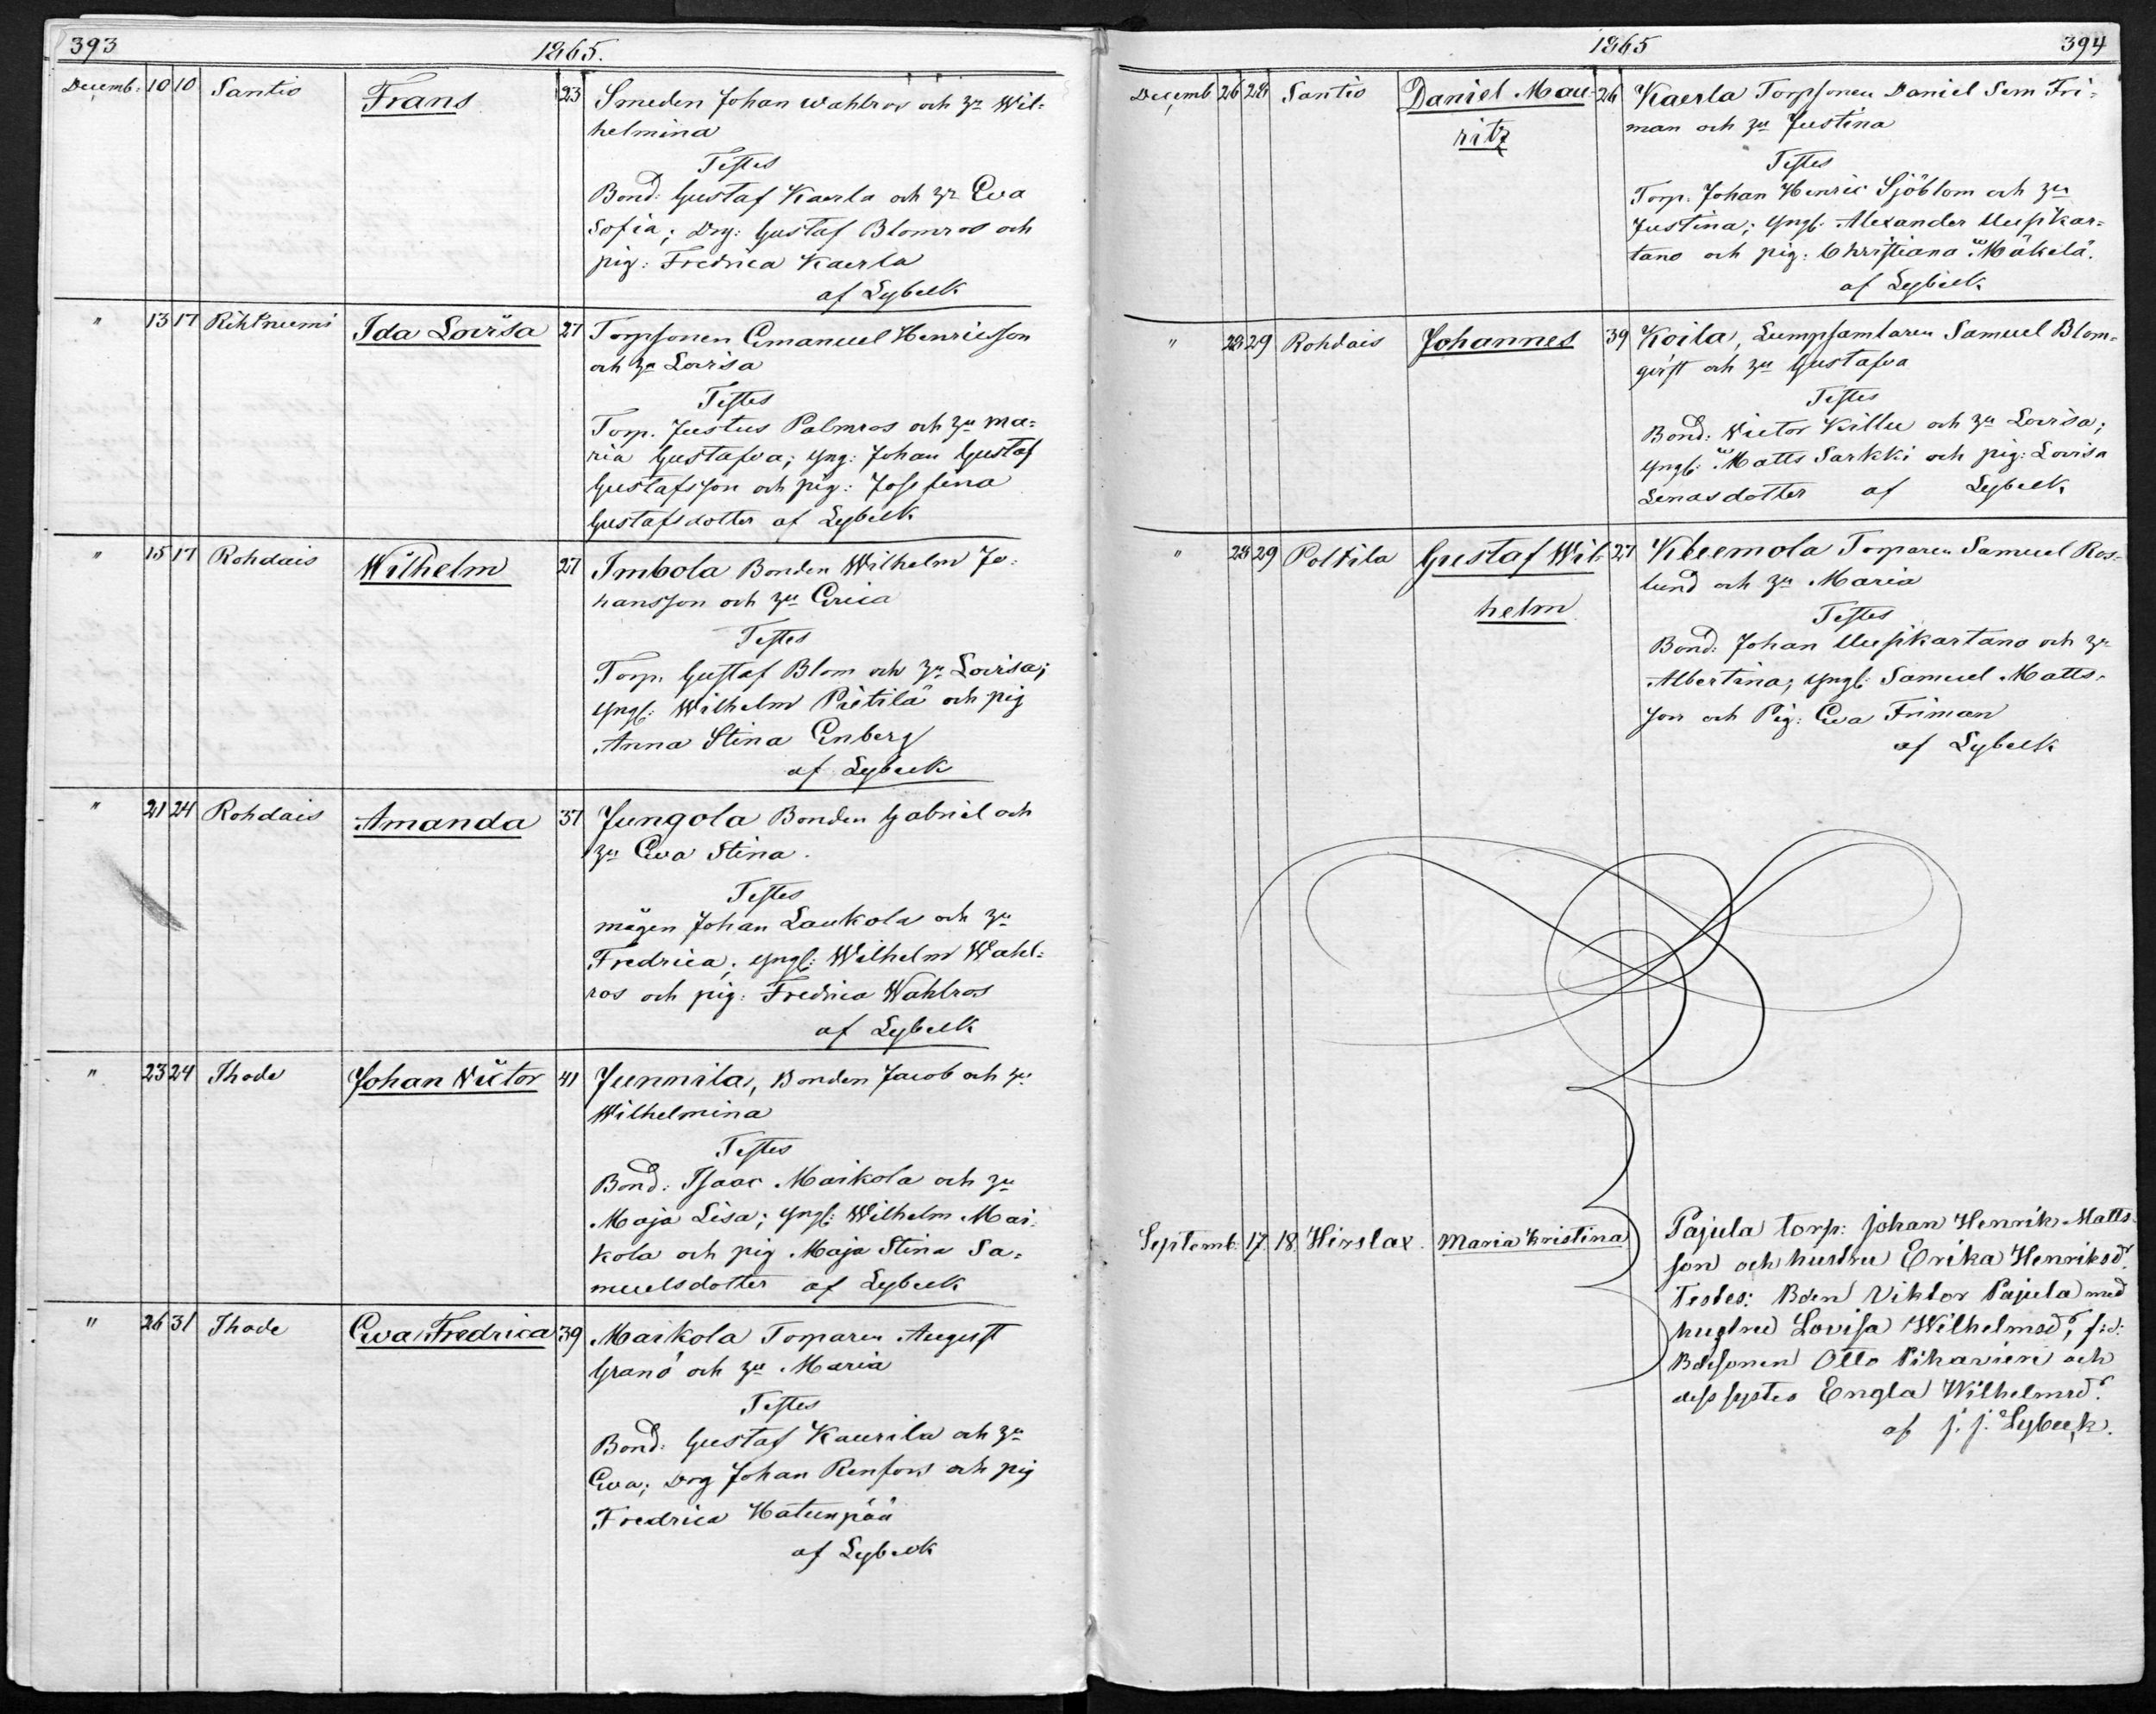 393
1865.
Decemb: 10 10 Santio Frans 23 Smeden Johan Wahlros och hu Wil=
helmina
Testes
Bond: Gustaf Kaerla och hu Eva
Sofia; Drg: Gustaf Blomros och
pig: Fredrica Kaerla
af Lybeck
" 13 17 Rihtniemi Ida Lovisa 27 Torpsonen Emanuel Henricsson
och hu Lovisa
Testes
Torp. Justus Palmros och hu Ma=
ria Gustafva; yng: Johan Gustaf
Gustafsson och pig: Josefina
Gustafsdotter af Lybeck
" 15 17 Rohdais Wilhelm 27 Imbola Bonden Wilhelm Jo=
hansson och hu Erica
Testes
Torp. Gustaf Blom och hu Lovisa;
yngl: Wilhelm Pietilä och pig
Anna Stina Enberg
af Lybeck
" 21 24 Rohdais Amanda 37 Jungola Bonden Gabriel och
hu Eva Stina.
Testes
mågen Johan Laukola och hu
Fredrica; yngl: Wilhelm Wahl=
ros och pig: Fredrica Wahlros
af Lybeck
" 23 24 Ihode Johan Victor 41 Junnila, Bonden Jacob och hu
Wilhelmina
Testes
Bond: Isaac Maikola och hu
Maja Lisa; yngl: Wilhelm Mai=
kola och pig Maja Stina Sa=
muelsdotter af Lybeck
" 26 31 Ihode Eva Fredrica 39 Maikola Torparen August
Granö och hu Maria
Testes
Bond: Gustaf Kaurila och hu
Eva; Drg Johan Renfors och pig
Fredrica Hatunpää
af Lybeck
1865
394
Decemb 26 28 Santio Daniel Mau= 26 Kaerla Torpsonen Daniel Sem Fri=
ritz man och hu Justina
Testes
Torp. Johan Henric Sjöblom och hu
Justina; yngl. Alexander Uusikar=
tano och pig: Christiana Mäkelä.
af Lybeck
" 28 29 Rohdais Johannes 39 Koila, Lumpsamlaren Samuel Blom=
qvist och hu Gustafva
Testes
Bond: Victor Killu och hu Lovisa;
yngl: Matts Sarkki och pig: Lovisa
Lenasdotter af Lybeck
" 28 29 Poltila Gustaf Wil= 27 Kleemola Torparen Samuel Ros=
helm lund och hu Maria
Testes
Bond: Johan Uusikartano och hu
Albertina; yngl: Samuel Matts=
son och Pig: Eva Friman
af Lybeck
Septemb. 17 18. Hirslax. Maria Kristina Pajula torp: Johan Henrik Matts=
son och hustru Erika Henriksdr.
Testes: Bden Viktor Pajula med
hustru Lovisa Wilhelmsdr, f:d:
Bdesonen Otto Pihavieri och
dess syster Engla Wilhelmsdr.
af J. J. Lybeck.